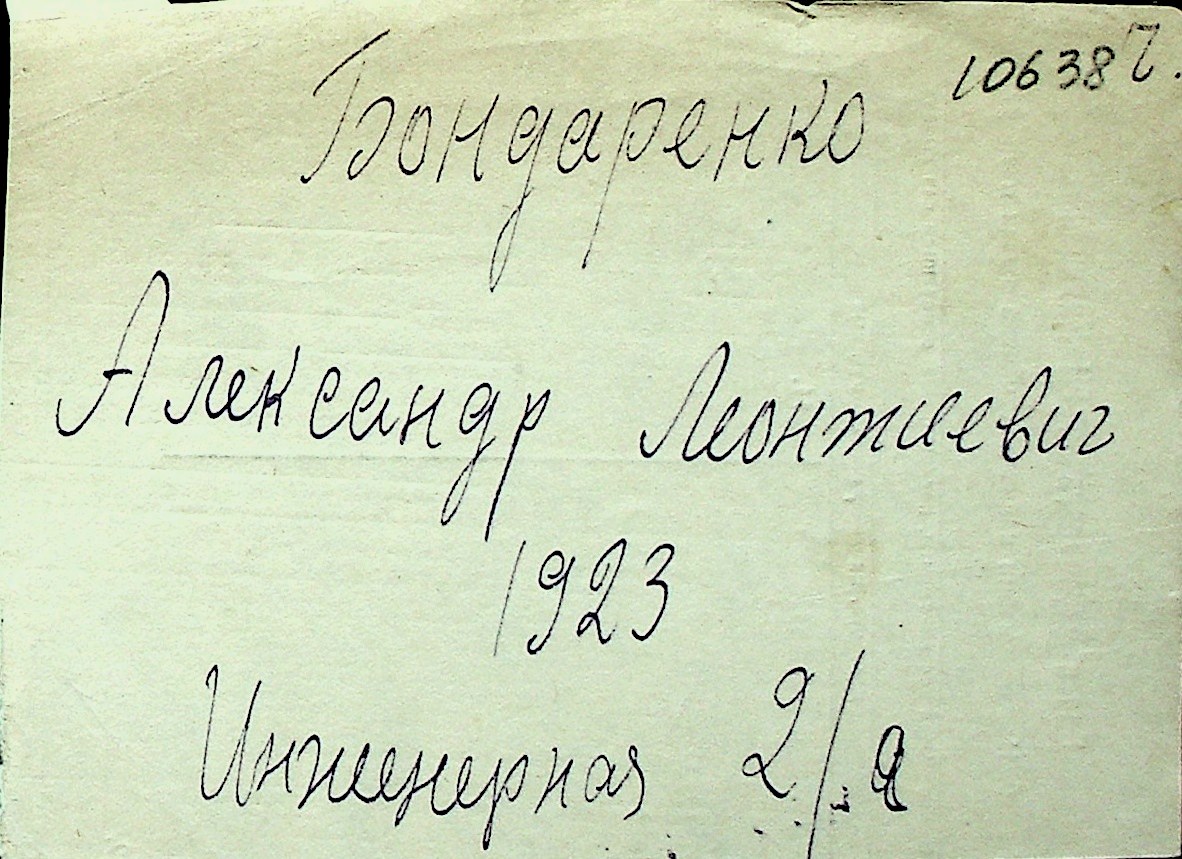 106387.
Бондаренко
Александр Леонтиевич
1923
Инженерная 2/а